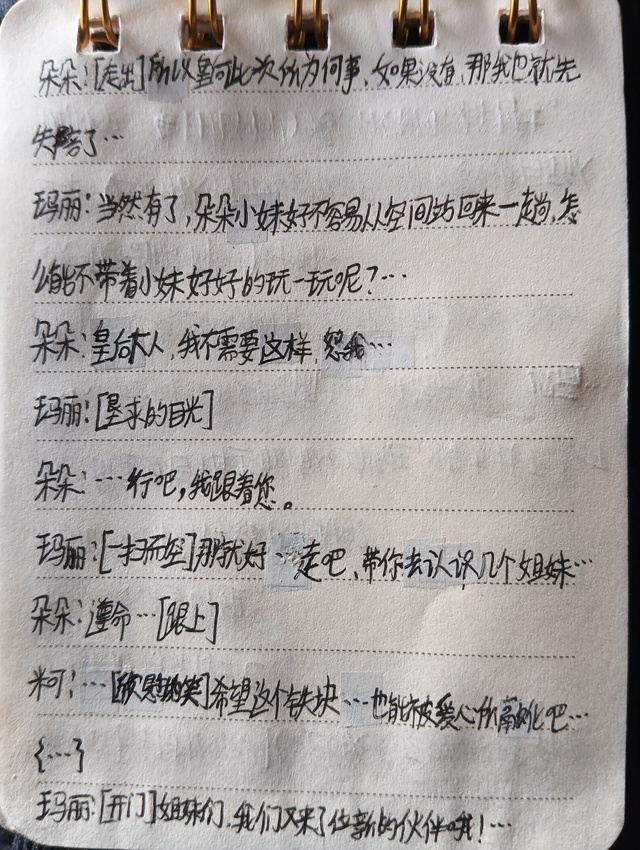 朵朵:[走出]所以皇何此次所为何事,如果没有,那我也就先
失陪了…
玛丽:当然有了,朵朵小妹好不容易从空间站回来一趟,怎
么能不带着小妹好好的玩一玩呢?…
朵朵:皇后大人,我不需要这样,恕我…
玛丽:[恳求的目光]
朵朵:…行吧,我跟着您。
玛丽:[一扫而空]那就好…走吧,带你去认识几个姐妹…
朵朵:遵命…[跟上]
米可:…[欣慰的笑]希望这个铁块…也能被爱心所融化吧…
{…}
玛丽:[开门]姐妹们,我们又来了位新的伙伴哦!…